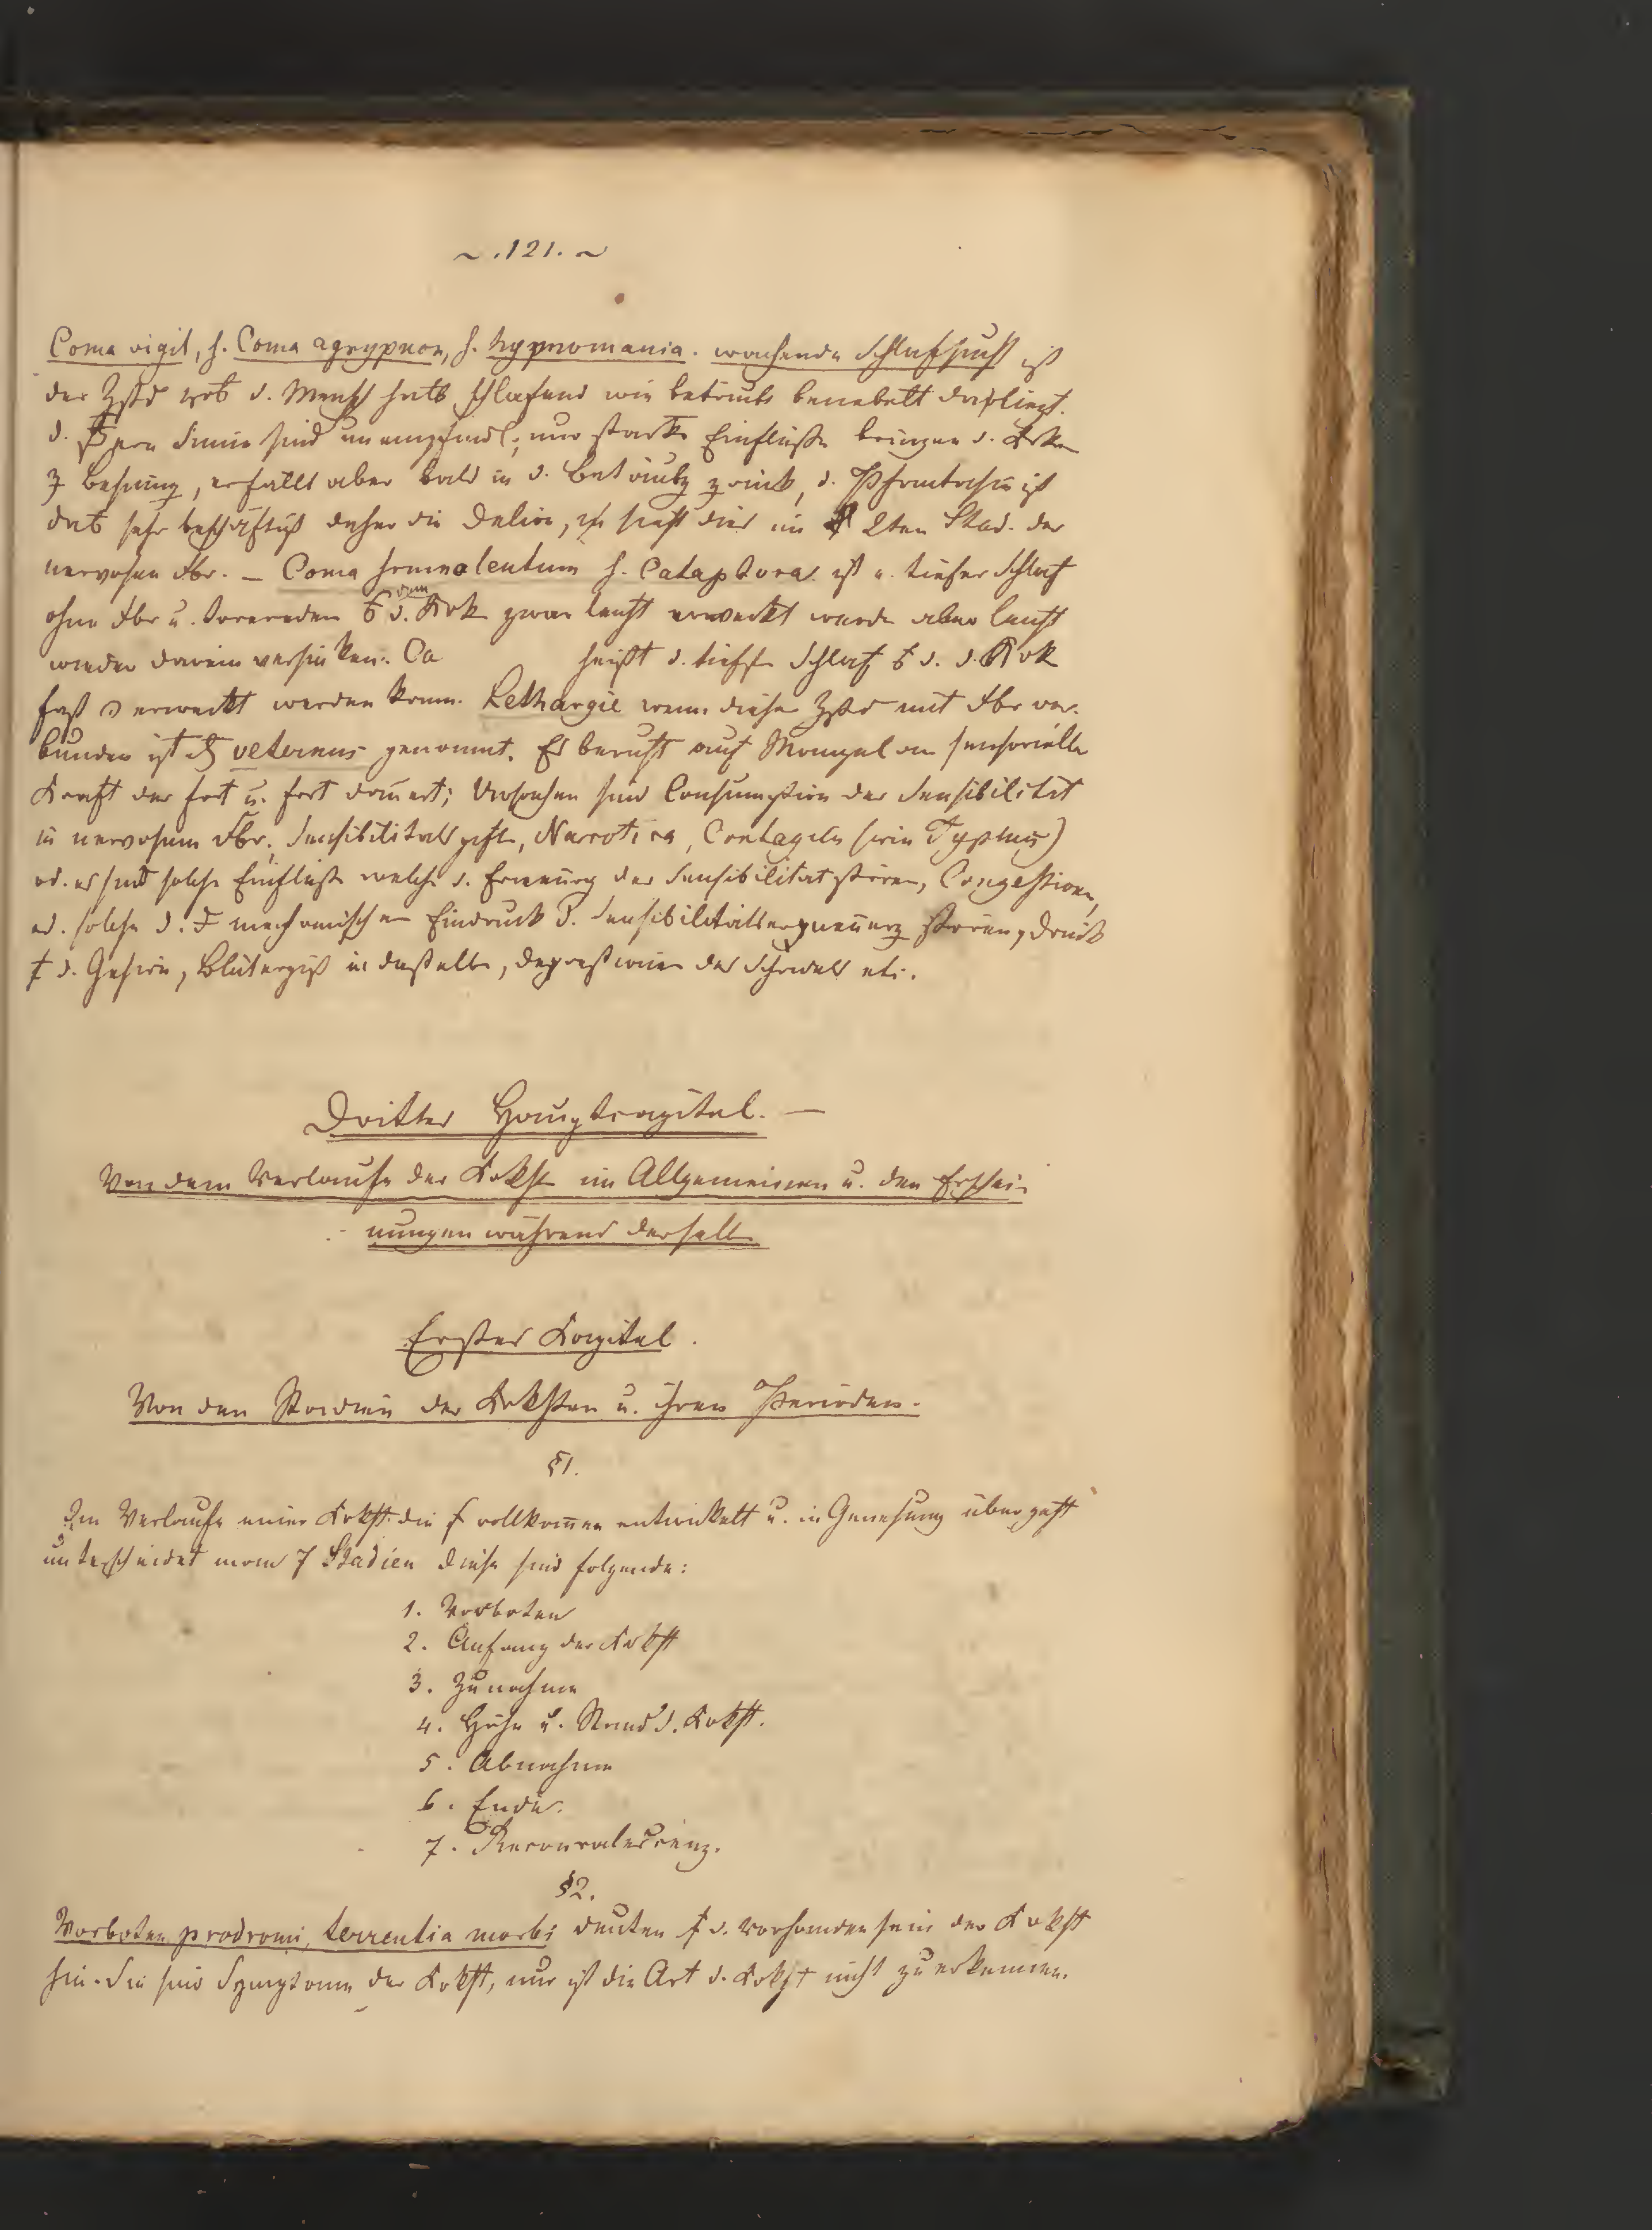 ~ .121. ~
Coma vigil, s. Coma agrypnon, s. hypnomania. wachende Schlafsucht ist
der Zstd d. Mensch halb schlafend wie betäubt benebelt daliegt.
d. Sinne sind unempfindl; nur starke Einflüße bringen d. Krken
z Besinung, er fällt aber bald in d. Betäubg zurück, d. Phantasie ist
dab sehr beschäftigt daher die Delire, dies im 2ten Stad. der
nervosen Fbr. — Coma somnolentum s. Cataphora ist e. tiefer Schlaf
ohne Fbr u. d. Krk zwar leicht erweckt werde aber leicht
wieder darein versinken. Ca heißt d. tiefste Schlaf d. Krk
fast erweckt werden kann. Lethargie wenn dieser Zstd mit Fbr ver-
bunden ist veternus genannt. Es beruht auf Mangel an sensorieller
Kraft der fort u. fort dauert; Ursachen sind Consumption der Sensibilität
in nervosem Fbr, Sensibilitatsgifte, Narcotica, Contagien (wie Typhus)
od. es sind solche Einflüße welche d. Erneuerg der Sensibilitat stören, Congestionen,
od. solche d. mechanischen Eindruck d. Sensibilitätserneuerg stören, Druck
d. Gehirn, Bluterguß in daßelbe, Depressionen des Schedels etc.
Dritter Hauptcapitel. —
Von dem Verlaufe der Krkht im Allgemeinen u. den Erschei-
nungen während derselb
Erster Kapitel.
Von den Stadien der Krkhten u. ihren Perioden.
§1.
Im Verlaufe einer Krkht die vollkomen entwickelt u. in Genesung übergeht
unterscheidet man 7 Stadien diese sind folgende:
1. Vorboten
2. Anfang der Krkht
3. Zunahme
4. Höhe u. Stand d. Krkht.
5. Abnahme
6. Ende.
7. Reconvalescenz.
§2.
Vorboten, prodromi, terrentia morbi deuten d. Vorhandensein der Krkht
hin. Sie sind Symptome der Krkht, nur ist die Art d. Krkht nicht zu erkennen.